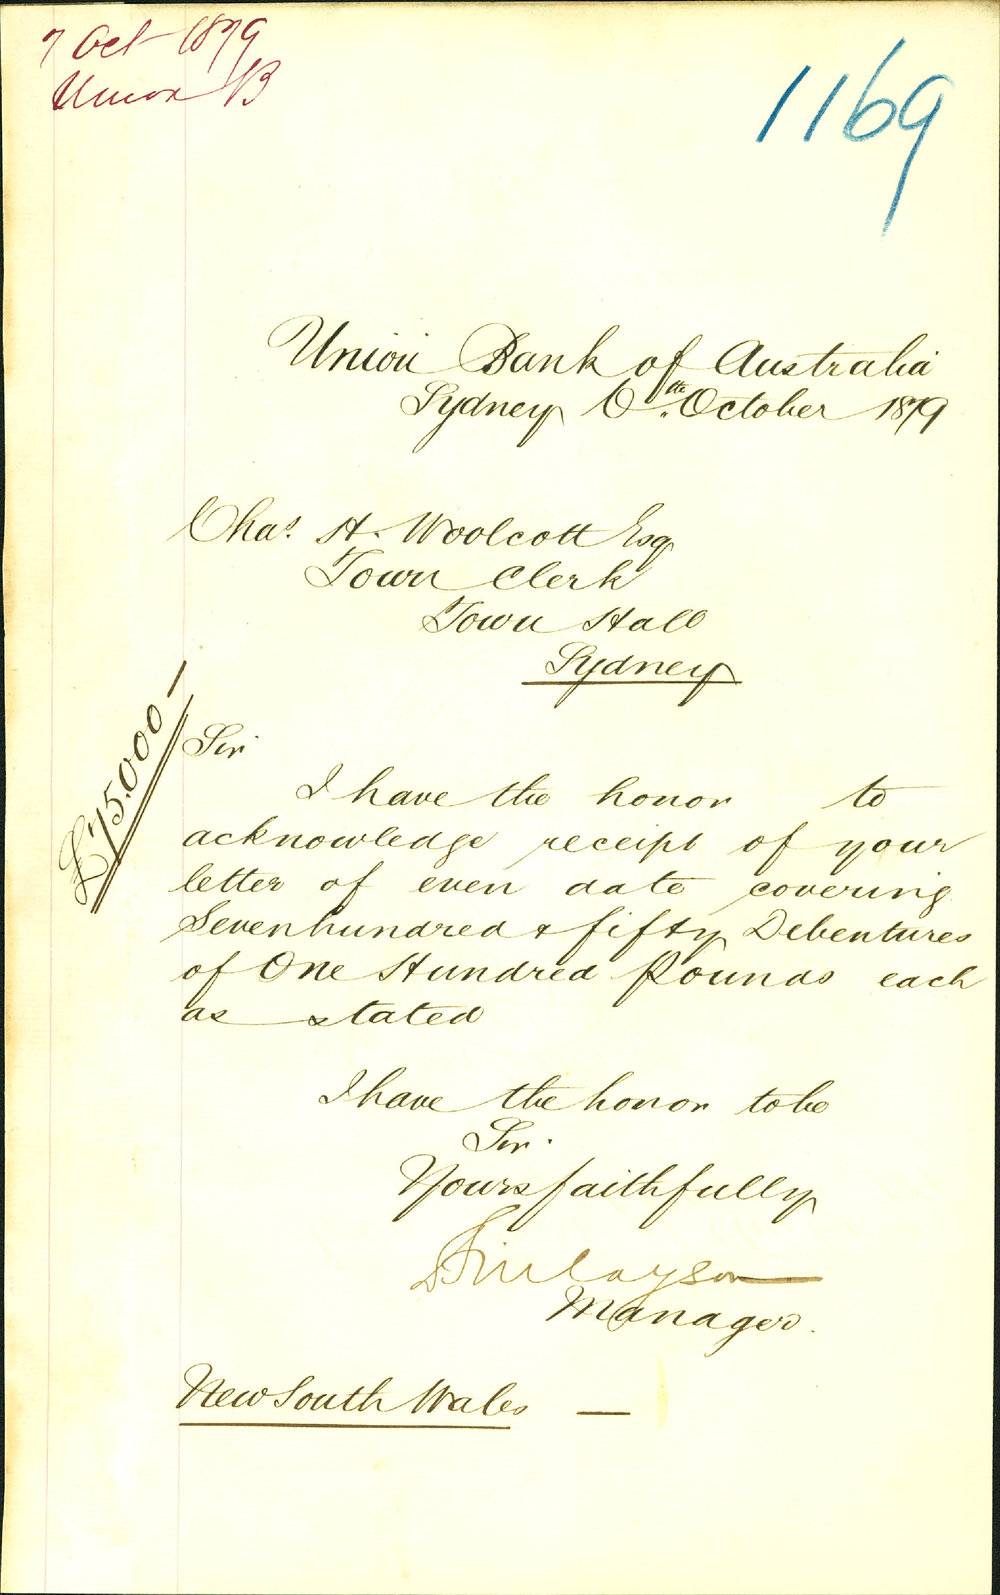 7 Oct 1879
Union B
1169
Union Bank of Australia
Sydney 6th. October 1879
Chas. H. Woolcott Esq
Town Clerk
Town Hall
Sydney
£75.000 —
Sir
I have the honor to
acknowledge receipt of your
letter of even date covering
Sevenhundred & fifty Debentures
of One Hundred Pounds each
as stated
I have the honor to be
Sir.
Yours faithfully
Finlayson
Manager.
New South Wales —